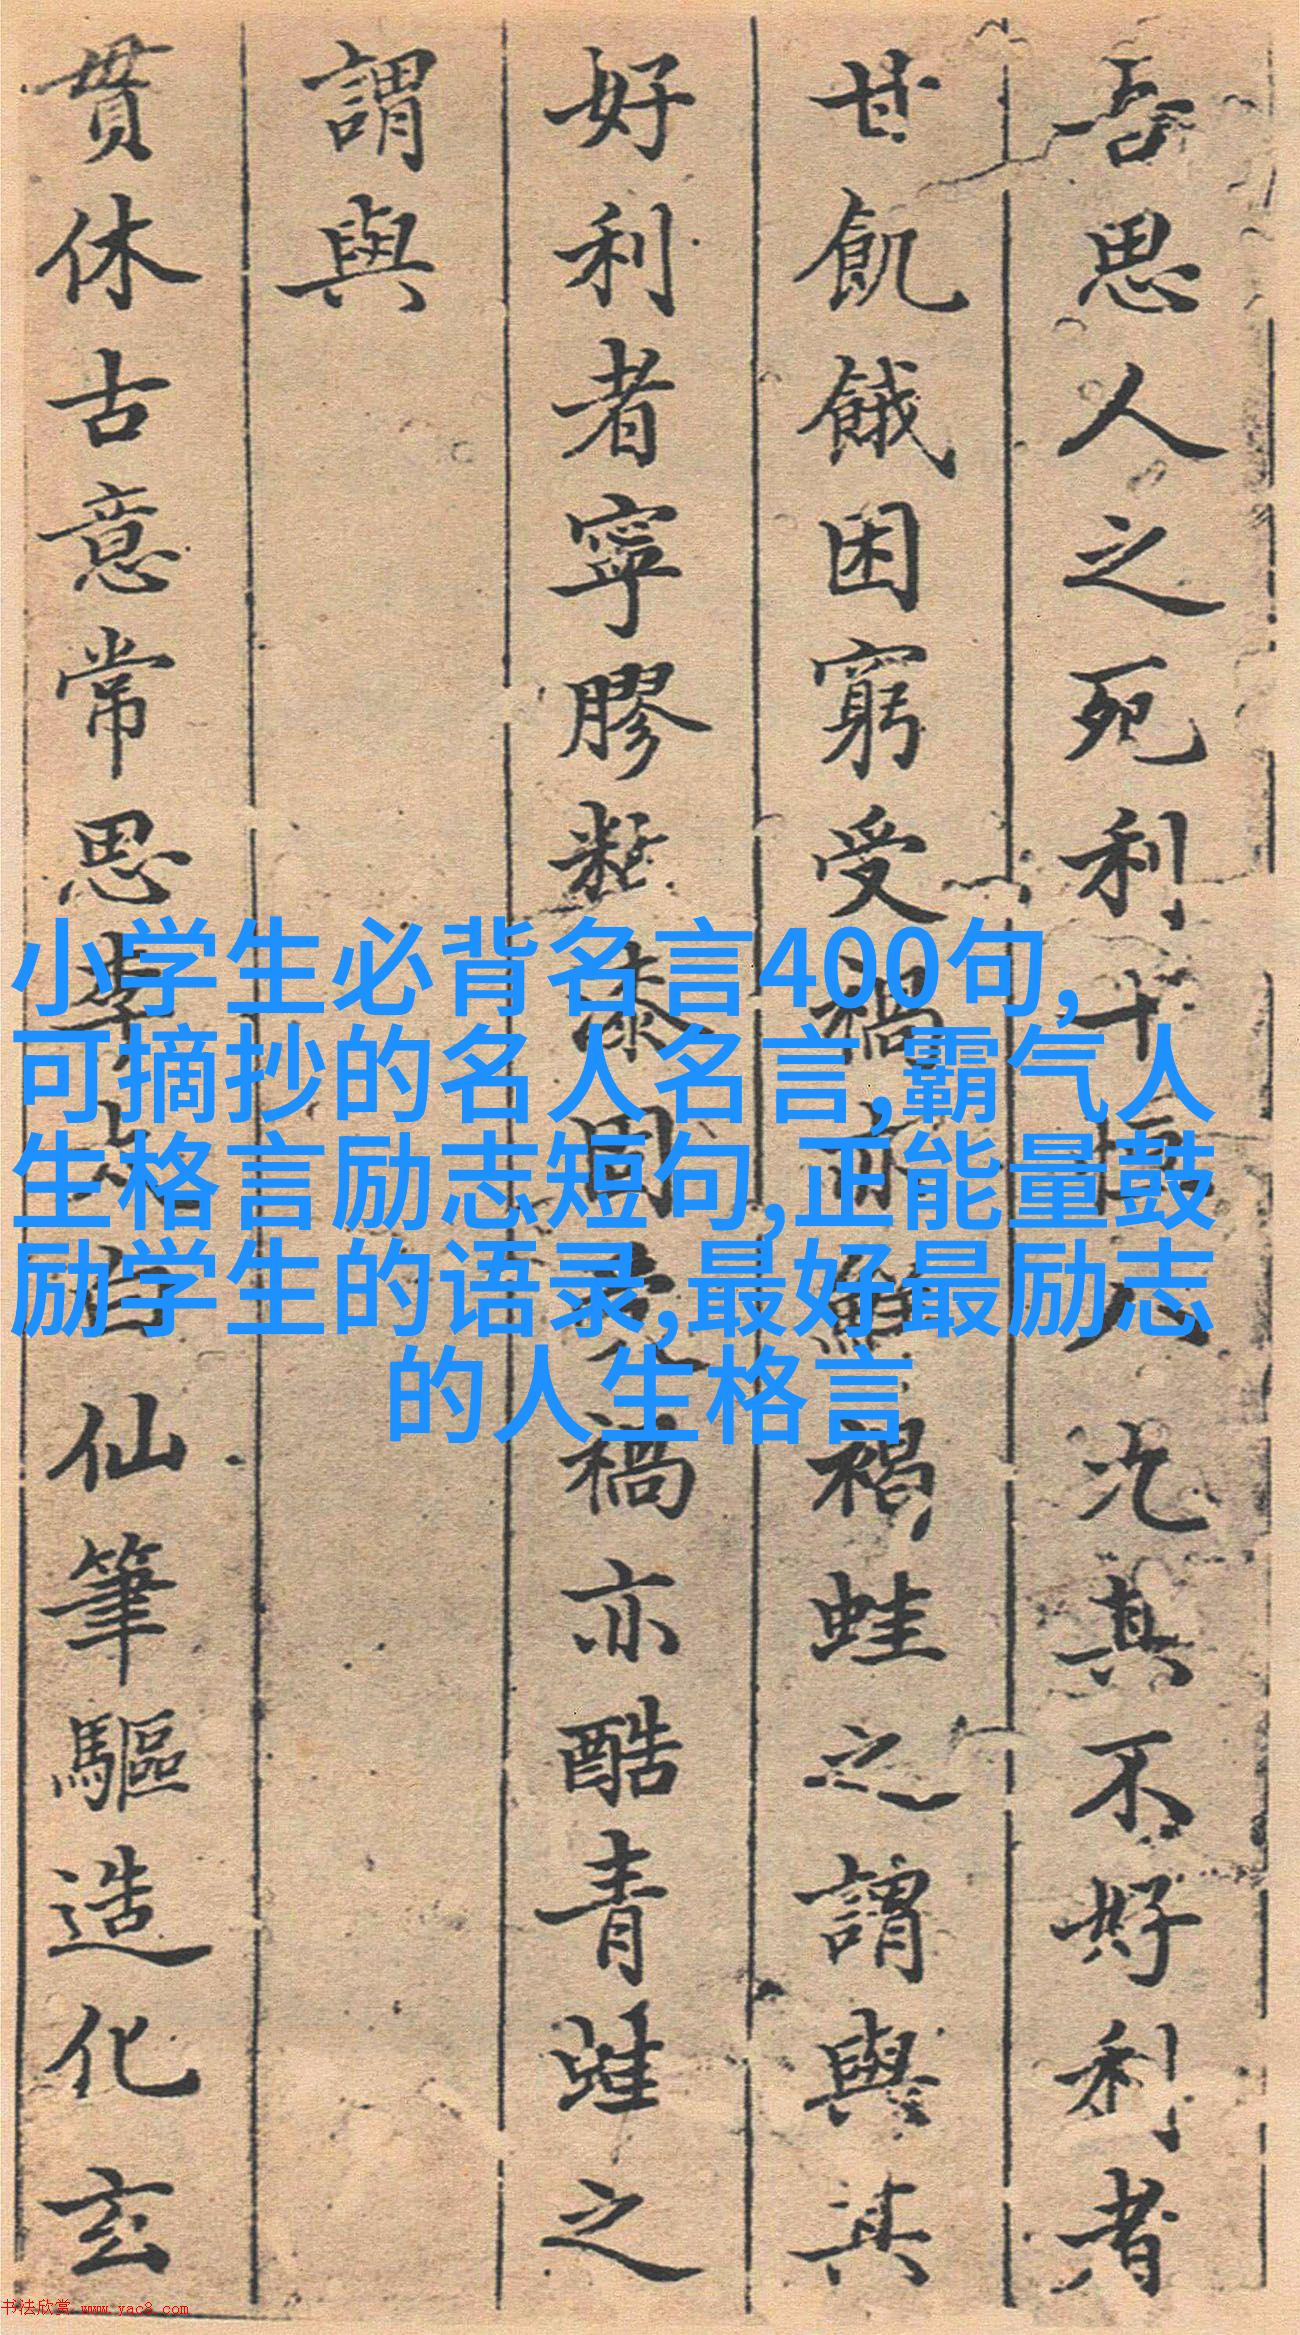 吾思人之死利十恒八況其不好利者
甘飢餓困窮受禍亦鮮禍蛙之謂與其
好利者寧膠黏漆固受禍亦酷青蛙之
謂與
貫休古意常思李太白仙筆驅造化玄
小学生必背名言400句,
可摘抄的名人名言,霸气人
生格言励志短句,正能量鼓
励学生的语录,最好最励志
的人生格言
书法欣赏 www.yac8.com